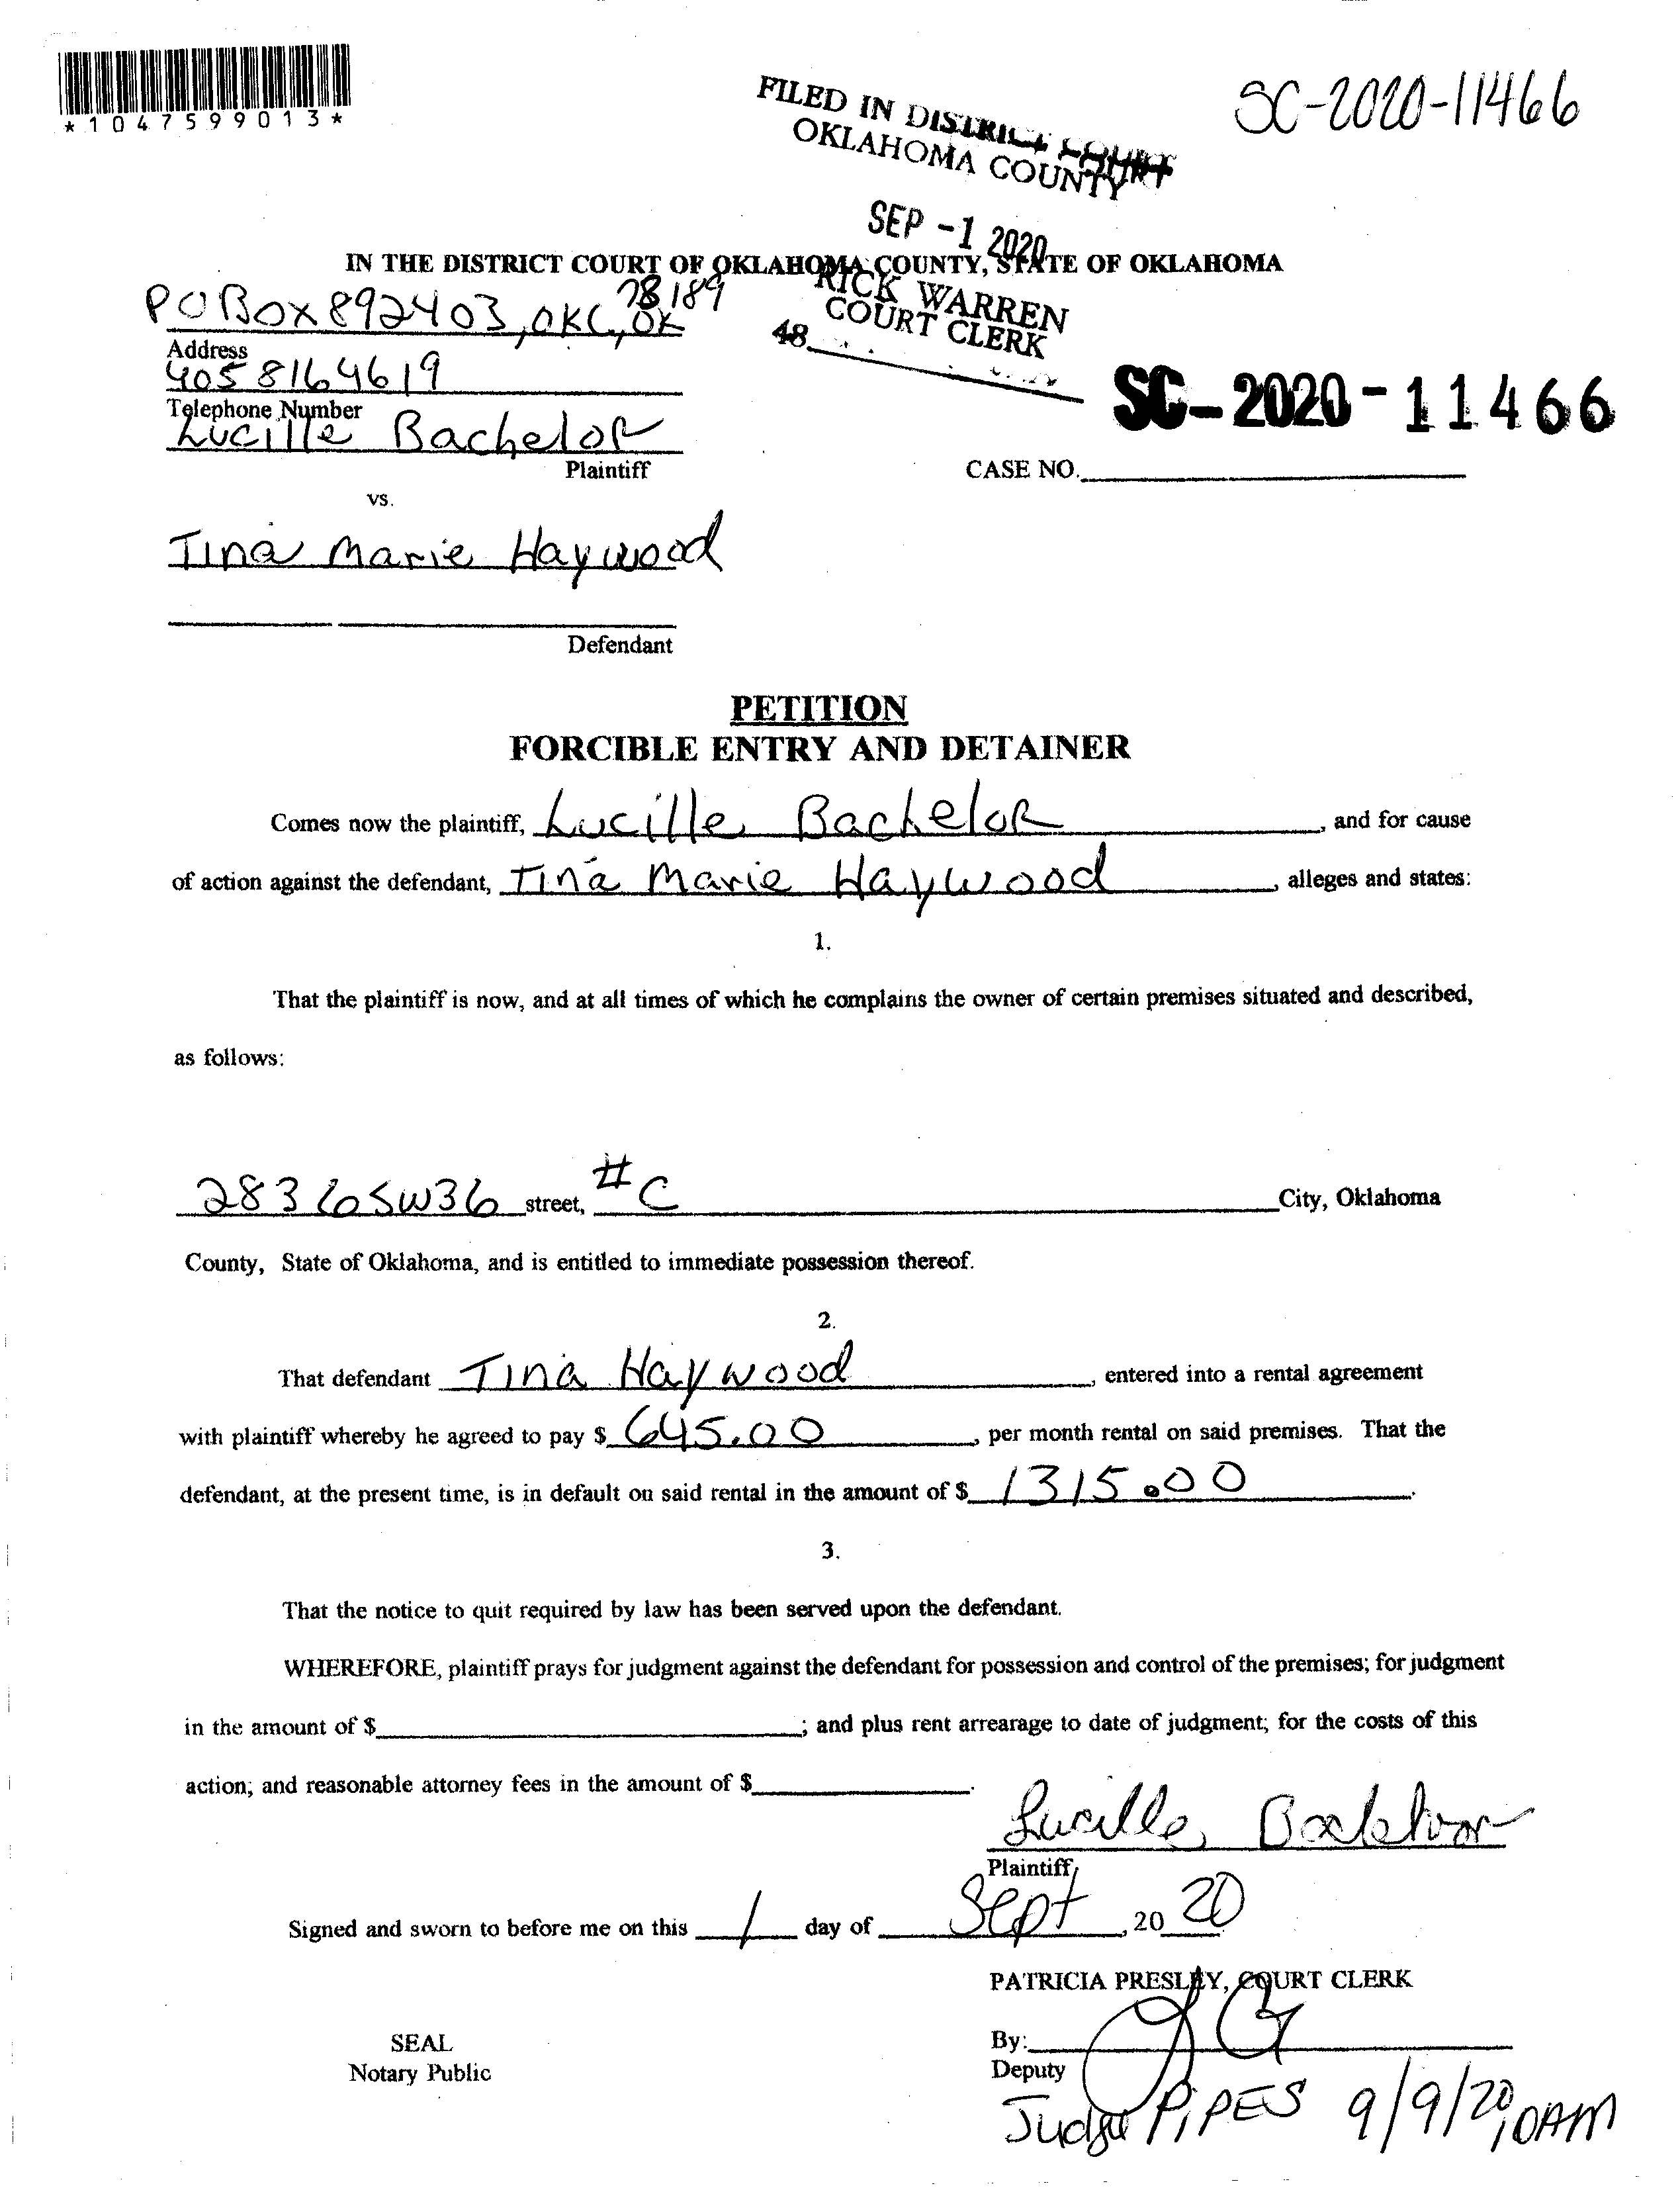 *1047599013*
SC-2020-11466
FILED IN DISTRICT COURT
OKLAHOMA COUNTY
SEP -1 2020
RICK WARREN
COURT CLERK
48
IN THE DISTRICT COURT OF OKLAHOMA COUNTY, STATE OF OKLAHOMA
PO Box 892403, OKC, OK 78189
Address
405 8164619
Telephone Number
Lucille Bachelor
Plaintiff
SC-2020-11466
CASE NO.
vs.
Tina Marie Haywood
Defendant
PETITION
FORCIBLE ENTRY AND DETAINER
Comes now the plaintiff, Lucille Bachelor, and for cause
of action against the defendant, Tina Marie Haywood, alleges and states:
1.
That the plaintiff is now, and at all times of which he complains the owner of certain premises situated and described,
as follows:
2836 SW36 street, #C City, Oklahoma
County, State of Oklahoma, and is entitled to immediate possession thereof.
2.
That defendant Tina Haywood, entered into a rental agreement
with plaintiff whereby he agreed to pay $ 645.00, per month rental on said premises. That the
defendant, at the present time, is in default on said rental in the amount of $ 1315.00.
3.
That the notice to quit required by law has been served upon the defendant.
WHEREFORE, plaintiff prays for judgment against the defendant for possession and control of the premises; for judgment
in the amount of $ ; and plus rent arrearage to date of judgment; for the costs of this
action; and reasonable attorney fees in the amount of $ .
Lucille Bachelor
Plaintiff
Signed and sworn to before me on this 1 day of Sept, 20 20
PATRICIA PRESLEY, COURT CLERK
SEAL
Notary Public
By:
Deputy
Judge PIPES 9/9/20 10AM